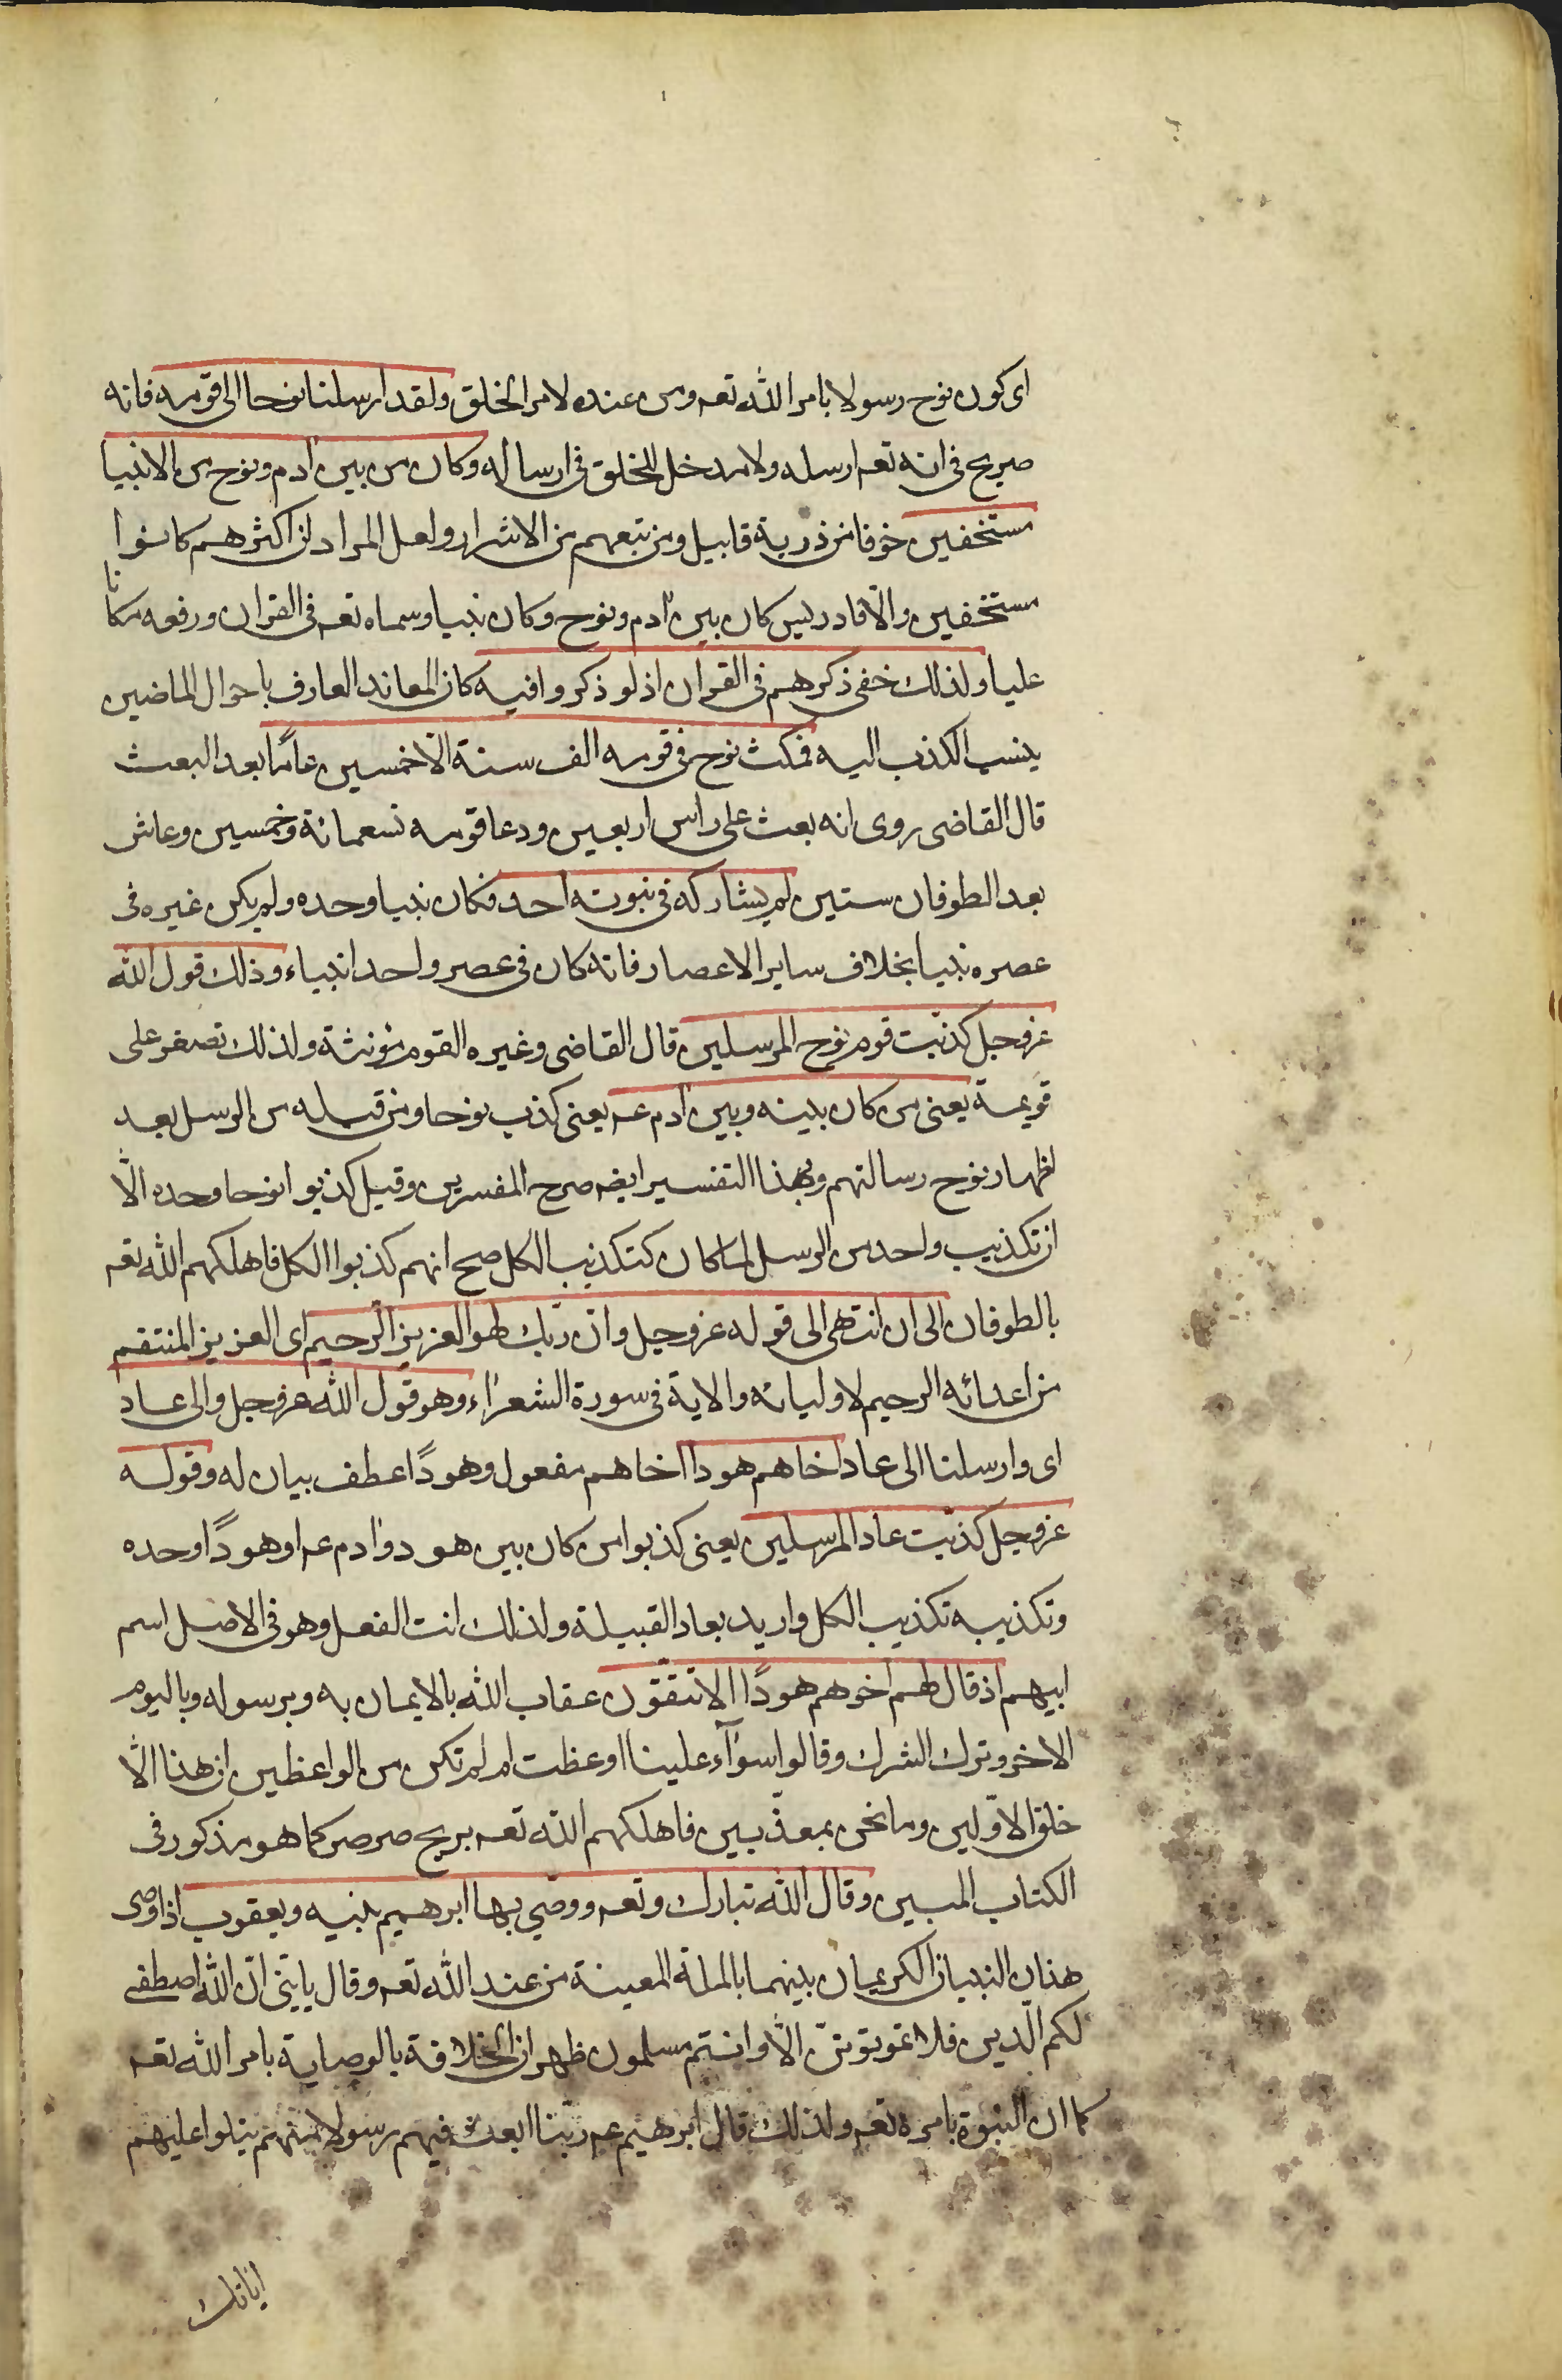 اى كون نوح رسولا بامر الله تعه ومن عنده لا مر الخلق ولقد ارسلنا نوحا الى قومه فانه
صريح فى انه تعه ارسله ولا مدخل للخلق فى ارساله وكان من بين آدم ونوح من الانبيا
مستخفين خوفا من ذرية قابيل ومن تبعهم من الاشرار ولعل المراد ان اكثرهم كانوا
مستخفين والا فادريس كان بين آدم ونوح وكان نبيا وسماه تعه فى القران ورفعه مكانا
عليا ولذلك خفى ذكرهم فى القران اذ لو ذكروا فيه كان المعاند العارف باحوال الماضين
ينسب الكذب اليه فمكث نوح فى قومه الف سنة الا خمسين عاما بعد البعث
قال القاضى روى انه بعث على راس اربعين ودعا قومه تسعمائة وخمسين وعاش
بعد الطوفان ستين لم يشاركه فى نبوته احد فكان نبيا وحده ولم يكن غيره فى
عصره نبيا بخلاف ساير الاعصار فانه كان فى عصر واحد انبياء وذلك قول الله
عز وجل كذبت قوم نوح المرسلين قال القاضى وغيره القوم مؤنثة ولذلك تصغر على
قويمة يعنى من كان بينه وبين آدم عه يعنى كذب نوحا ومن قبله من الرسل بعد
اظهار نوح رسالتهم وبهذا التفسير ايضه صرح المفسرين وقيل كذبوا نوحا وحده الّا
ان تكذيب واحد من الرسل لما كان كتكذيب الكل صح انهم كذبوا الكل فاهلكهم الله تعه
بالطوفان الى ان انتهى الى قوله عز وجل وان ربك لهو العزيز الرحيم اى العزيز المنتقم
من اعدائه الرحيم لاوليائه والاية فى سورة الشعراء وهو قول الله عز وجل والى عاد
اى وارسلنا الى عاد اخاهم هودا اخاهم مفعول وهودًا عطف بيان له وقوله
عز وجل كذبت عاد المرسلين يعنى كذبوا من كان بين هود وآدم عه او هودًا وحده
وتكذيبه تكذيب الكل واريد بعاد القبيلة ولذلك انث الفعل وهو فى الاصل اسم
ابيهم اذ قال لهم اخوهم هودًا الا تتقون عقاب الله بالايمان به وبرسوله وباليوم
الاخر وترك الشرك وقالوا سوآء علينا اوعظت ام لم تكن من الواعظين ان هذا الّا
خلق الاوّلين وما نحن بمعذّبين فاهلكهم الله تعه بريح صرصر كما هو مذكور فى
الكتاب المبين وقال الله تبارك وتعه ووصّى بها ابرهيم بنيه ويعقوب اذ اوصى
هذان النبيان الكريمان بينهما بالملة المعينة من عند الله تعه وقال يا بنى انّ الله اصطفى
لكم الدّين فلا تموتونّ الّا وانتم مسلمون ظهر ان الخلافة بالوصاية بامر الله تعه
كما ان النبوة بامره تعه ولذلك قال ابرهيم عه ربّنا ابعث فيهم رسولا منهم يتلوا عليهم
اياتك